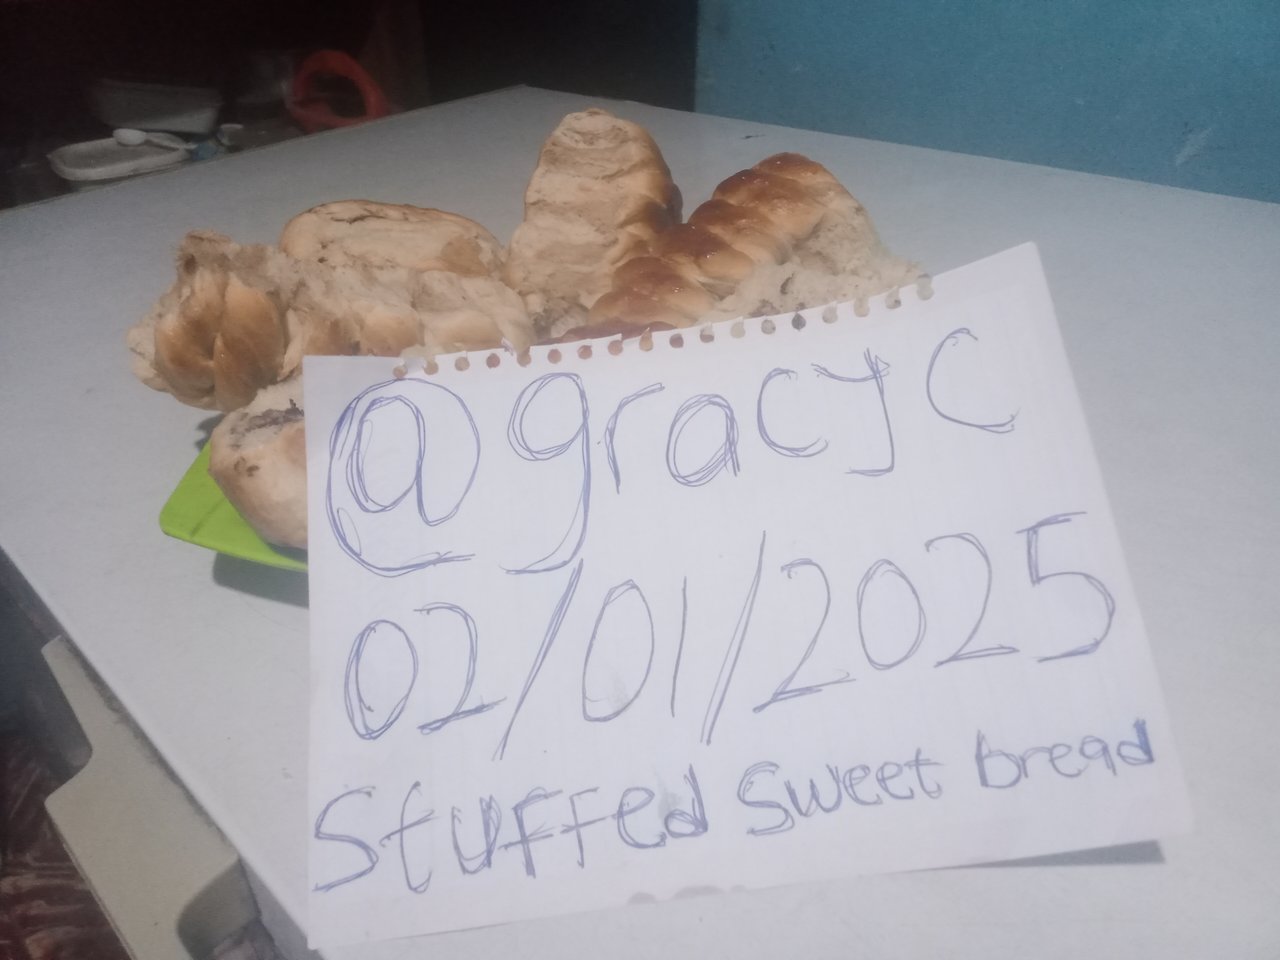 @gracyc
02/01/2025
Stuffed sweet bread